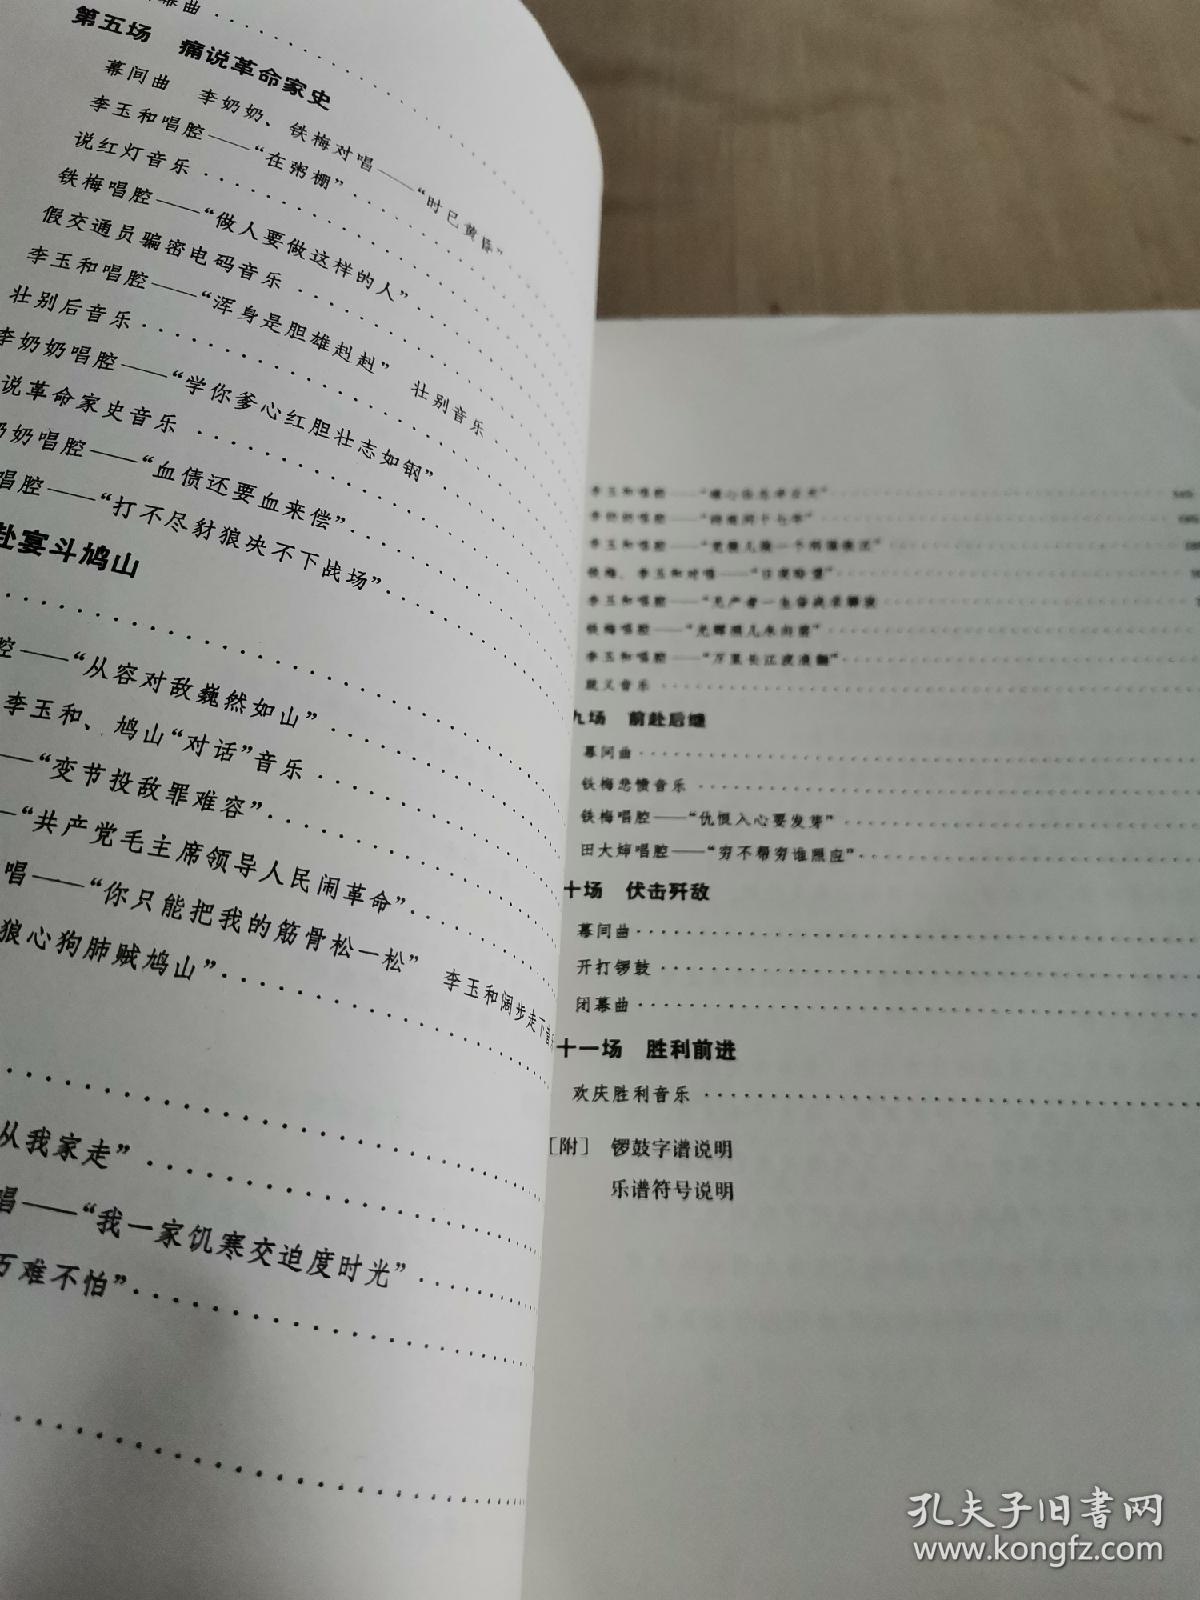 幕曲
第五场 痛说革命家史
幕间曲 李奶奶、铁梅对唱——“时已黄昏”
李玉和唱腔——“在粥棚”
说红灯音乐
铁梅唱腔——“做人要做这样的人”
假交通员骗密电码音乐
李玉和唱腔——“浑身是胆雄赳赳” 壮别音乐
壮别后音乐
李奶奶唱腔——“学你爹心红胆壮志如钢”
说革命家史音乐
奶奶唱腔——“血债还要血来偿”
唱腔——“打不尽豺狼决不下战场”
赴宴斗鸠山
腔——“从容对敌巍然如山”
李玉和、鸠山“对话”音乐
—“变节投敌罪难容”
—“共产党毛主席领导人民闹革命”
唱——“你只能把我的筋骨松一松” 李玉和阔步走下音
狼心狗肺贼鸠山”
从我家走”
唱——“我一家饥寒交迫度时光”
万难不怕”
李玉和唱腔——
李奶奶唱腔——
李玉和唱腔——
铁梅、李玉和对唱——“日夜盼望”
李玉和唱腔——“无产者一生奋战求解放
铁梅唱腔——“光辉照儿永向前”
李玉和唱腔——“万里长江波浪翻”
就义音乐
九场 前赴后继
幕间曲
铁梅悲愤音乐
铁梅唱腔——“仇恨入心要发芽”
田大婶唱腔——“穷不帮穷谁照应”
十场 伏击歼敌
幕间曲
开打锣鼓
闭幕曲
十一场 胜利前进
欢庆胜利音乐
[附] 锣鼓字谱说明
乐谱符号说明
孔夫子旧书网
www.kongfz.com